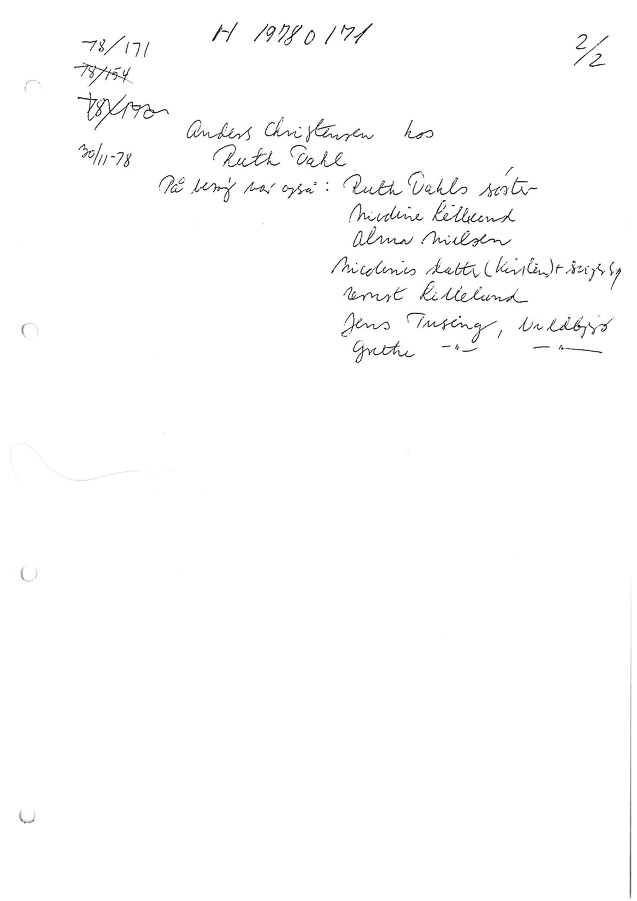 H 1978 0 171
2/2
78/171
78/154
78/170
Anders Christensen hos
30/11-78 Ruth Dahl
På besøg var også: Ruth Dahls søster
Nicoline Lillelund
Alma Nielsen
Nicolines datter (Kirsten) +
Ernst Lillelund
Jens Tusing, Vildbjerg
Grethe -"- -"-